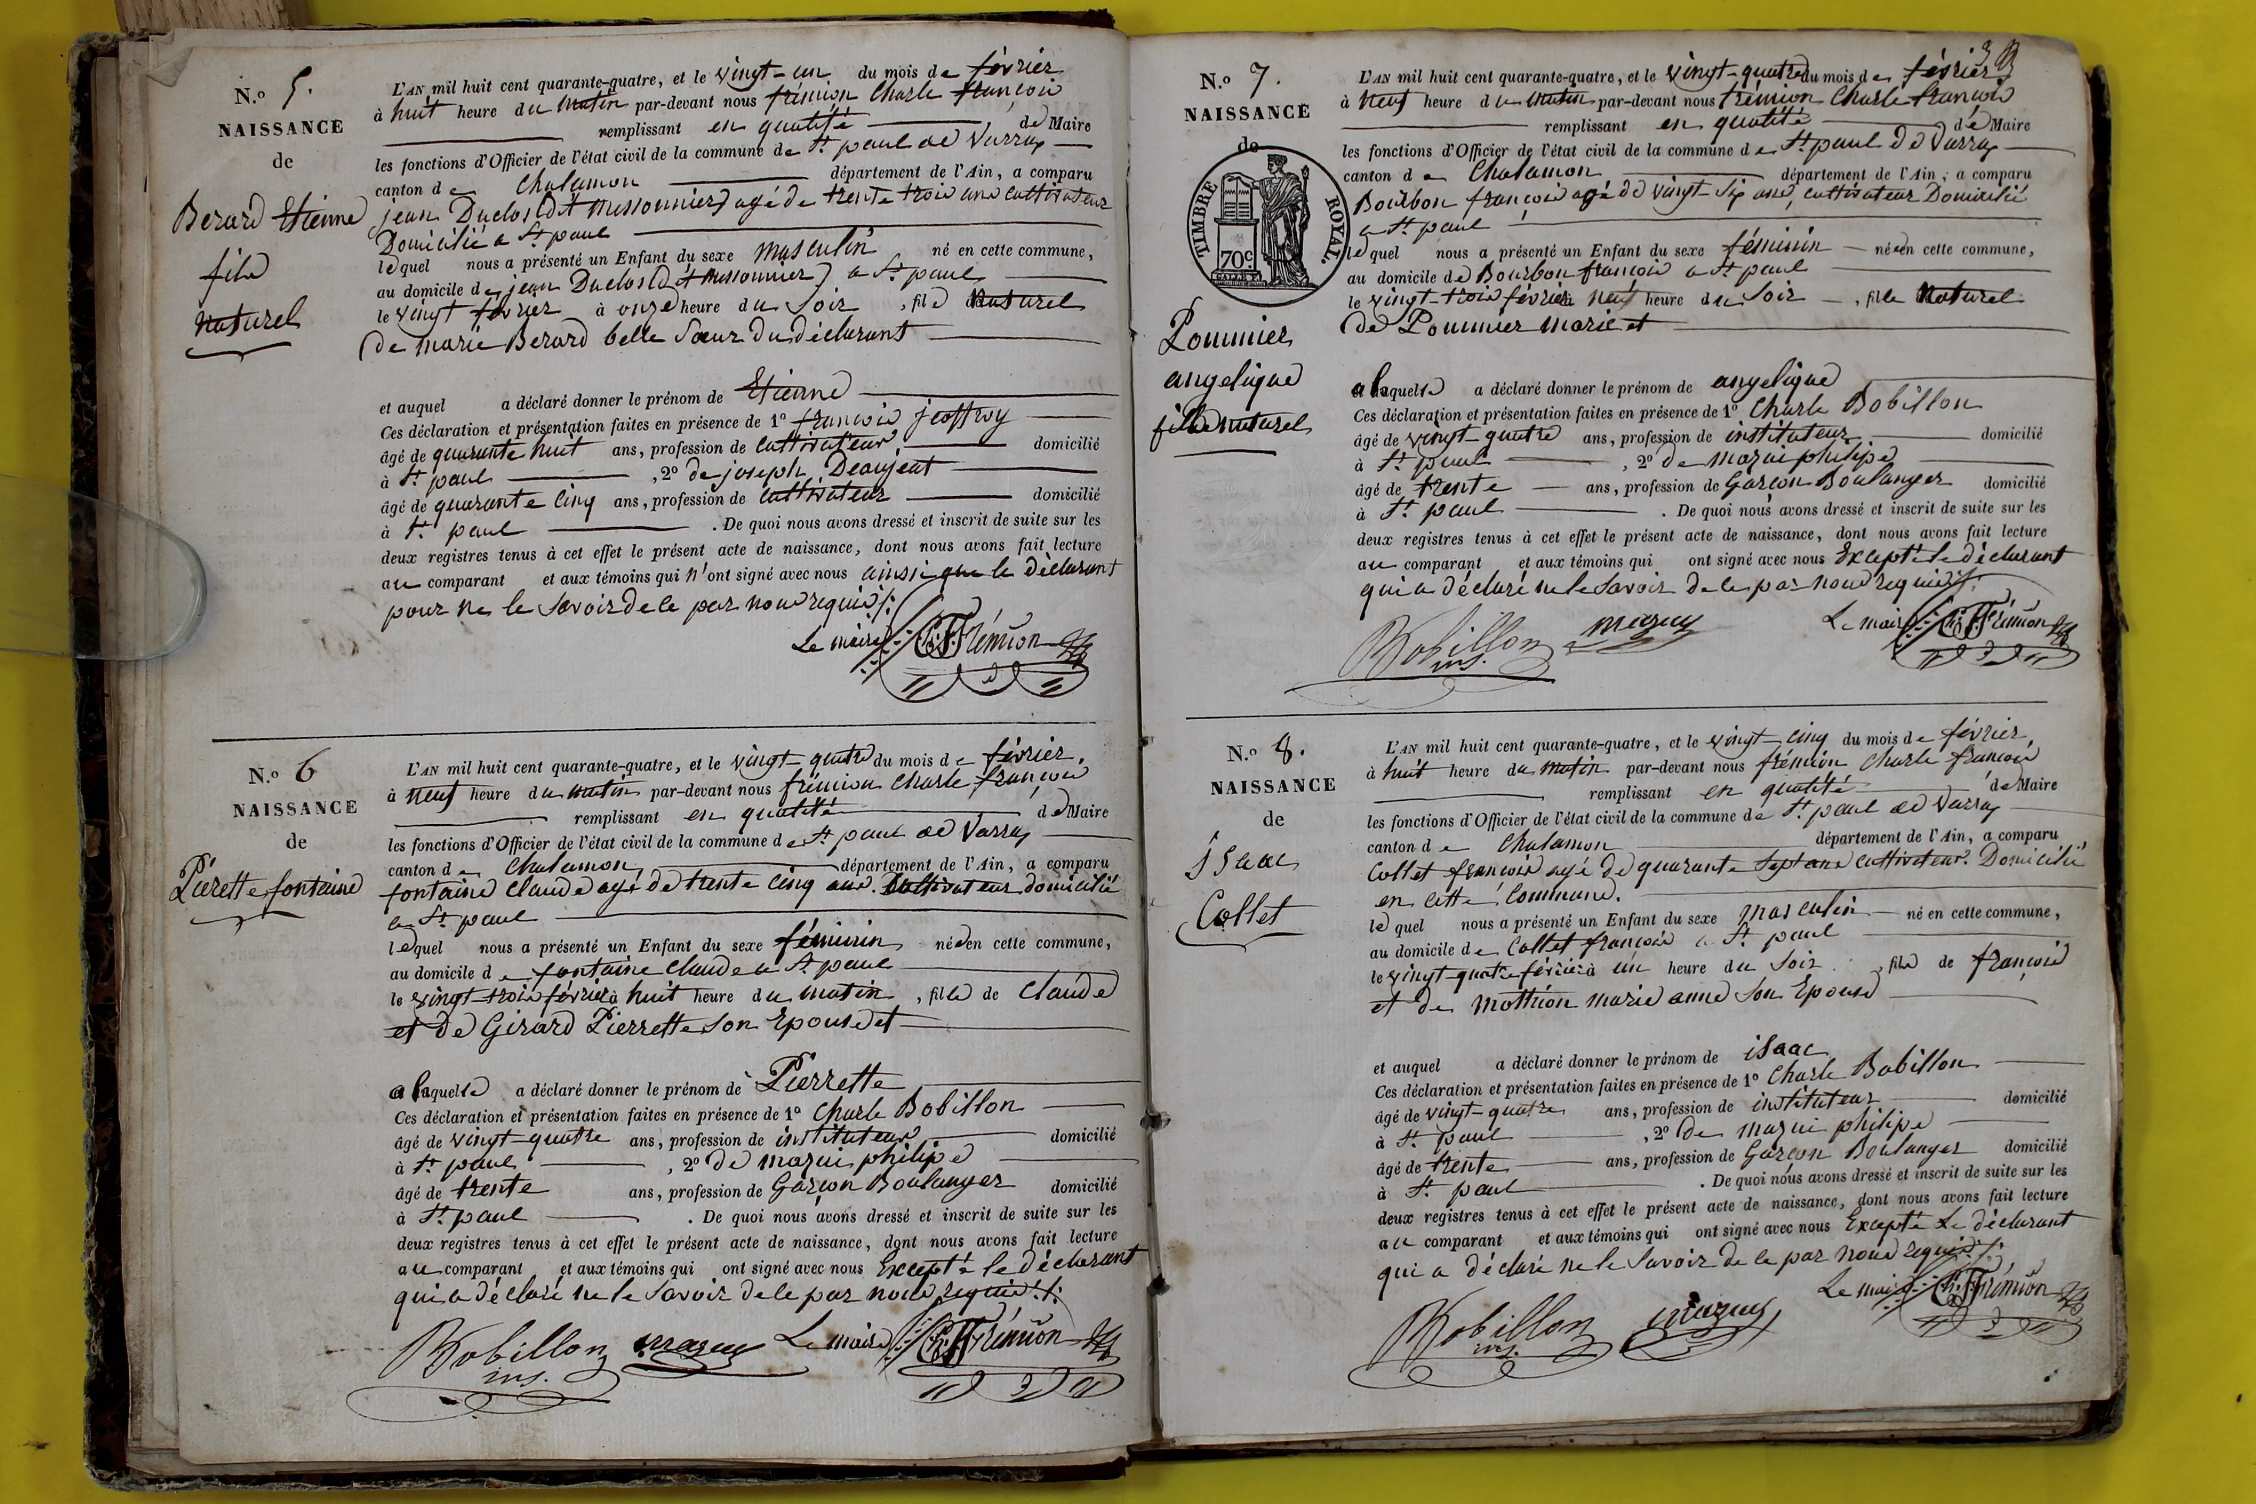 N.o 5.
NAISSANCE
de
Berard Etienne
fils
naturel
L'AN mil huit cent quarante-quatre, et le vingt-un du mois de février
à huit heure du matin par-devant nous frémion Charle françois
remplissant en qualité de Maire
les fonctions d'Officier de l'état civil de la commune de St paul de Varras
canton de Chalamon département de l'Ain, a comparu
jean Duclos (dit missonnier) agé de trente trois ans cultivateur
Domicilié a St paul
lequel nous a présenté un Enfant du sexe masculin né en cette commune,
au domicile de jean Duclos (dit missonnier) a St paul
le vingt février à onze heure du Soir, fils naturel
de marie Berard belle Sœur du déclarant
et auquel a déclaré donner le prénom de Etienne
Ces déclaration et présentation faites en présence de 1o françois jeoffroy
âgé de quarante huit ans, profession de cultivateur domicilié
à St paul, 2o de joseph Deanjeat
âgé de quarante cinq ans, profession de cultivateur domicilié
à St paul. De quoi nous avons dressé et inscrit de suite sur les
deux registres tenus à cet effet le présent acte de naissance, dont nous avons fait lecture
au comparant et aux témoins qui n'ont signé avec nous ainsi que le déclarant
pour ne le savoir de ce par nous requis ./.
Le maire Ch. F. Frémion
N.o 6
NAISSANCE
de
Pierette fontaine
L'AN mil huit cent quarante-quatre, et le vingt-quatre du mois de février.
à neuf heure du matin par-devant nous frémion Charle françois
remplissant en qualité de Maire
les fonctions d'Officier de l'état civil de la commune de St paul de Varras
canton de Chalamon département de l'Ain, a comparu
fontaine claude agé de trente cinq ans. Cultivateur domicilié
a St paul
lequel nous a présenté un Enfant du sexe féminin née en cette commune,
au domicile de fontaine claude a St paul
le vingt-trois février à huit heure du matin, fille de claude
et de Girard Pierrette son Epouse et
a laquelle a déclaré donner le prénom de Pierrette
Ces déclaration et présentation faites en présence de 1o Charle Bobillon
âgé de vingt-quatre ans, profession de instituteur domicilié
à St paul, 2o de mazui philipe
âgé de trente ans, profession de Garçon Boulanger domicilié
à St paul. De quoi nous avons dressé et inscrit de suite sur les
deux registres tenus à cet effet le présent acte de naissance, dont nous avons fait lecture
au comparant et aux témoins qui ont signé avec nous Excepté le déclarant
qui a déclaré ne le savoir de ce par nous requis ./.
Bobillon ins. mazuy Le maire Ch. F. Frémion
N.o 7.
NAISSANCE
de
TIMBRE ROYAL.
70c.
Pommier
angelique
fille naturel
L'AN mil huit cent quarante-quatre, et le vingt-quatre du mois de février
à neuf heure du matin par-devant nous frémion Charle françois
remplissant en qualité de Maire
les fonctions d'Officier de l'état civil de la commune de St paul de Varras
canton de Chalamon département de l'Ain, a comparu
Bourbon françois agé de vingt Six ans, cultivateur Domicilié
a St paul
lequel nous a présenté un Enfant du sexe féminin née en cette commune,
au domicile de Bourbon françois a St paul
le vingt-trois février à neuf heure du Soir, fille naturel
de Pommier marie et
a laquelle a déclaré donner le prénom de angelique
Ces déclaration et présentation faites en présence de 1o Charle Bobillon
âgé de vingt-quatre ans, profession de instituteur domicilié
à St paul, 2o de mazui philipe
âgé de trente ans, profession de Garçon Boulanger domicilié
à St paul. De quoi nous avons dressé et inscrit de suite sur les
deux registres tenus à cet effet le présent acte de naissance, dont nous avons fait lecture
au comparant et aux témoins qui ont signé avec nous Excepté le déclarant
qui a déclaré ne le savoir de ce par nous requis ./.
Bobillon ins. mazuy Le maire Ch. F. Frémion
N.o 8.
NAISSANCE
de
Isaac
Collet
L'AN mil huit cent quarante-quatre, et le vingt-cinq du mois de février,
à huit heure du matin par-devant nous frémion Charle françois
remplissant en qualité de Maire
les fonctions d'Officier de l'état civil de la commune de St paul de Varras
canton de Chalamon département de l'Ain, a comparu
Collet françois agé de quarante Sept ans cultivateur. Domicilié
en cette Commune.
lequel nous a présenté un Enfant du sexe masculin né en cette commune,
au domicile de Collet françois a St paul
le vingt-quatre février à un heure du Soir, fils de françois
et de mothion marie anne Son Epouse
et auquel a déclaré donner le prénom de isaac
Ces déclaration et présentation faites en présence de 1o Charle Bobillon
âgé de vingt-quatre ans, profession de instituteur domicilié
à St paul, 2o de mazui philipe
âgé de trente ans, profession de Garçon Boulanger domicilié
à St paul. De quoi nous avons dressé et inscrit de suite sur les
deux registres tenus à cet effet le présent acte de naissance, dont nous avons fait lecture
au comparant et aux témoins qui ont signé avec nous Excepté Le déclarant
qui a déclaré ne le Savoir de ce par nous requis ./.
Bobillon ins. mazuy Le maire Ch. F. Frémion